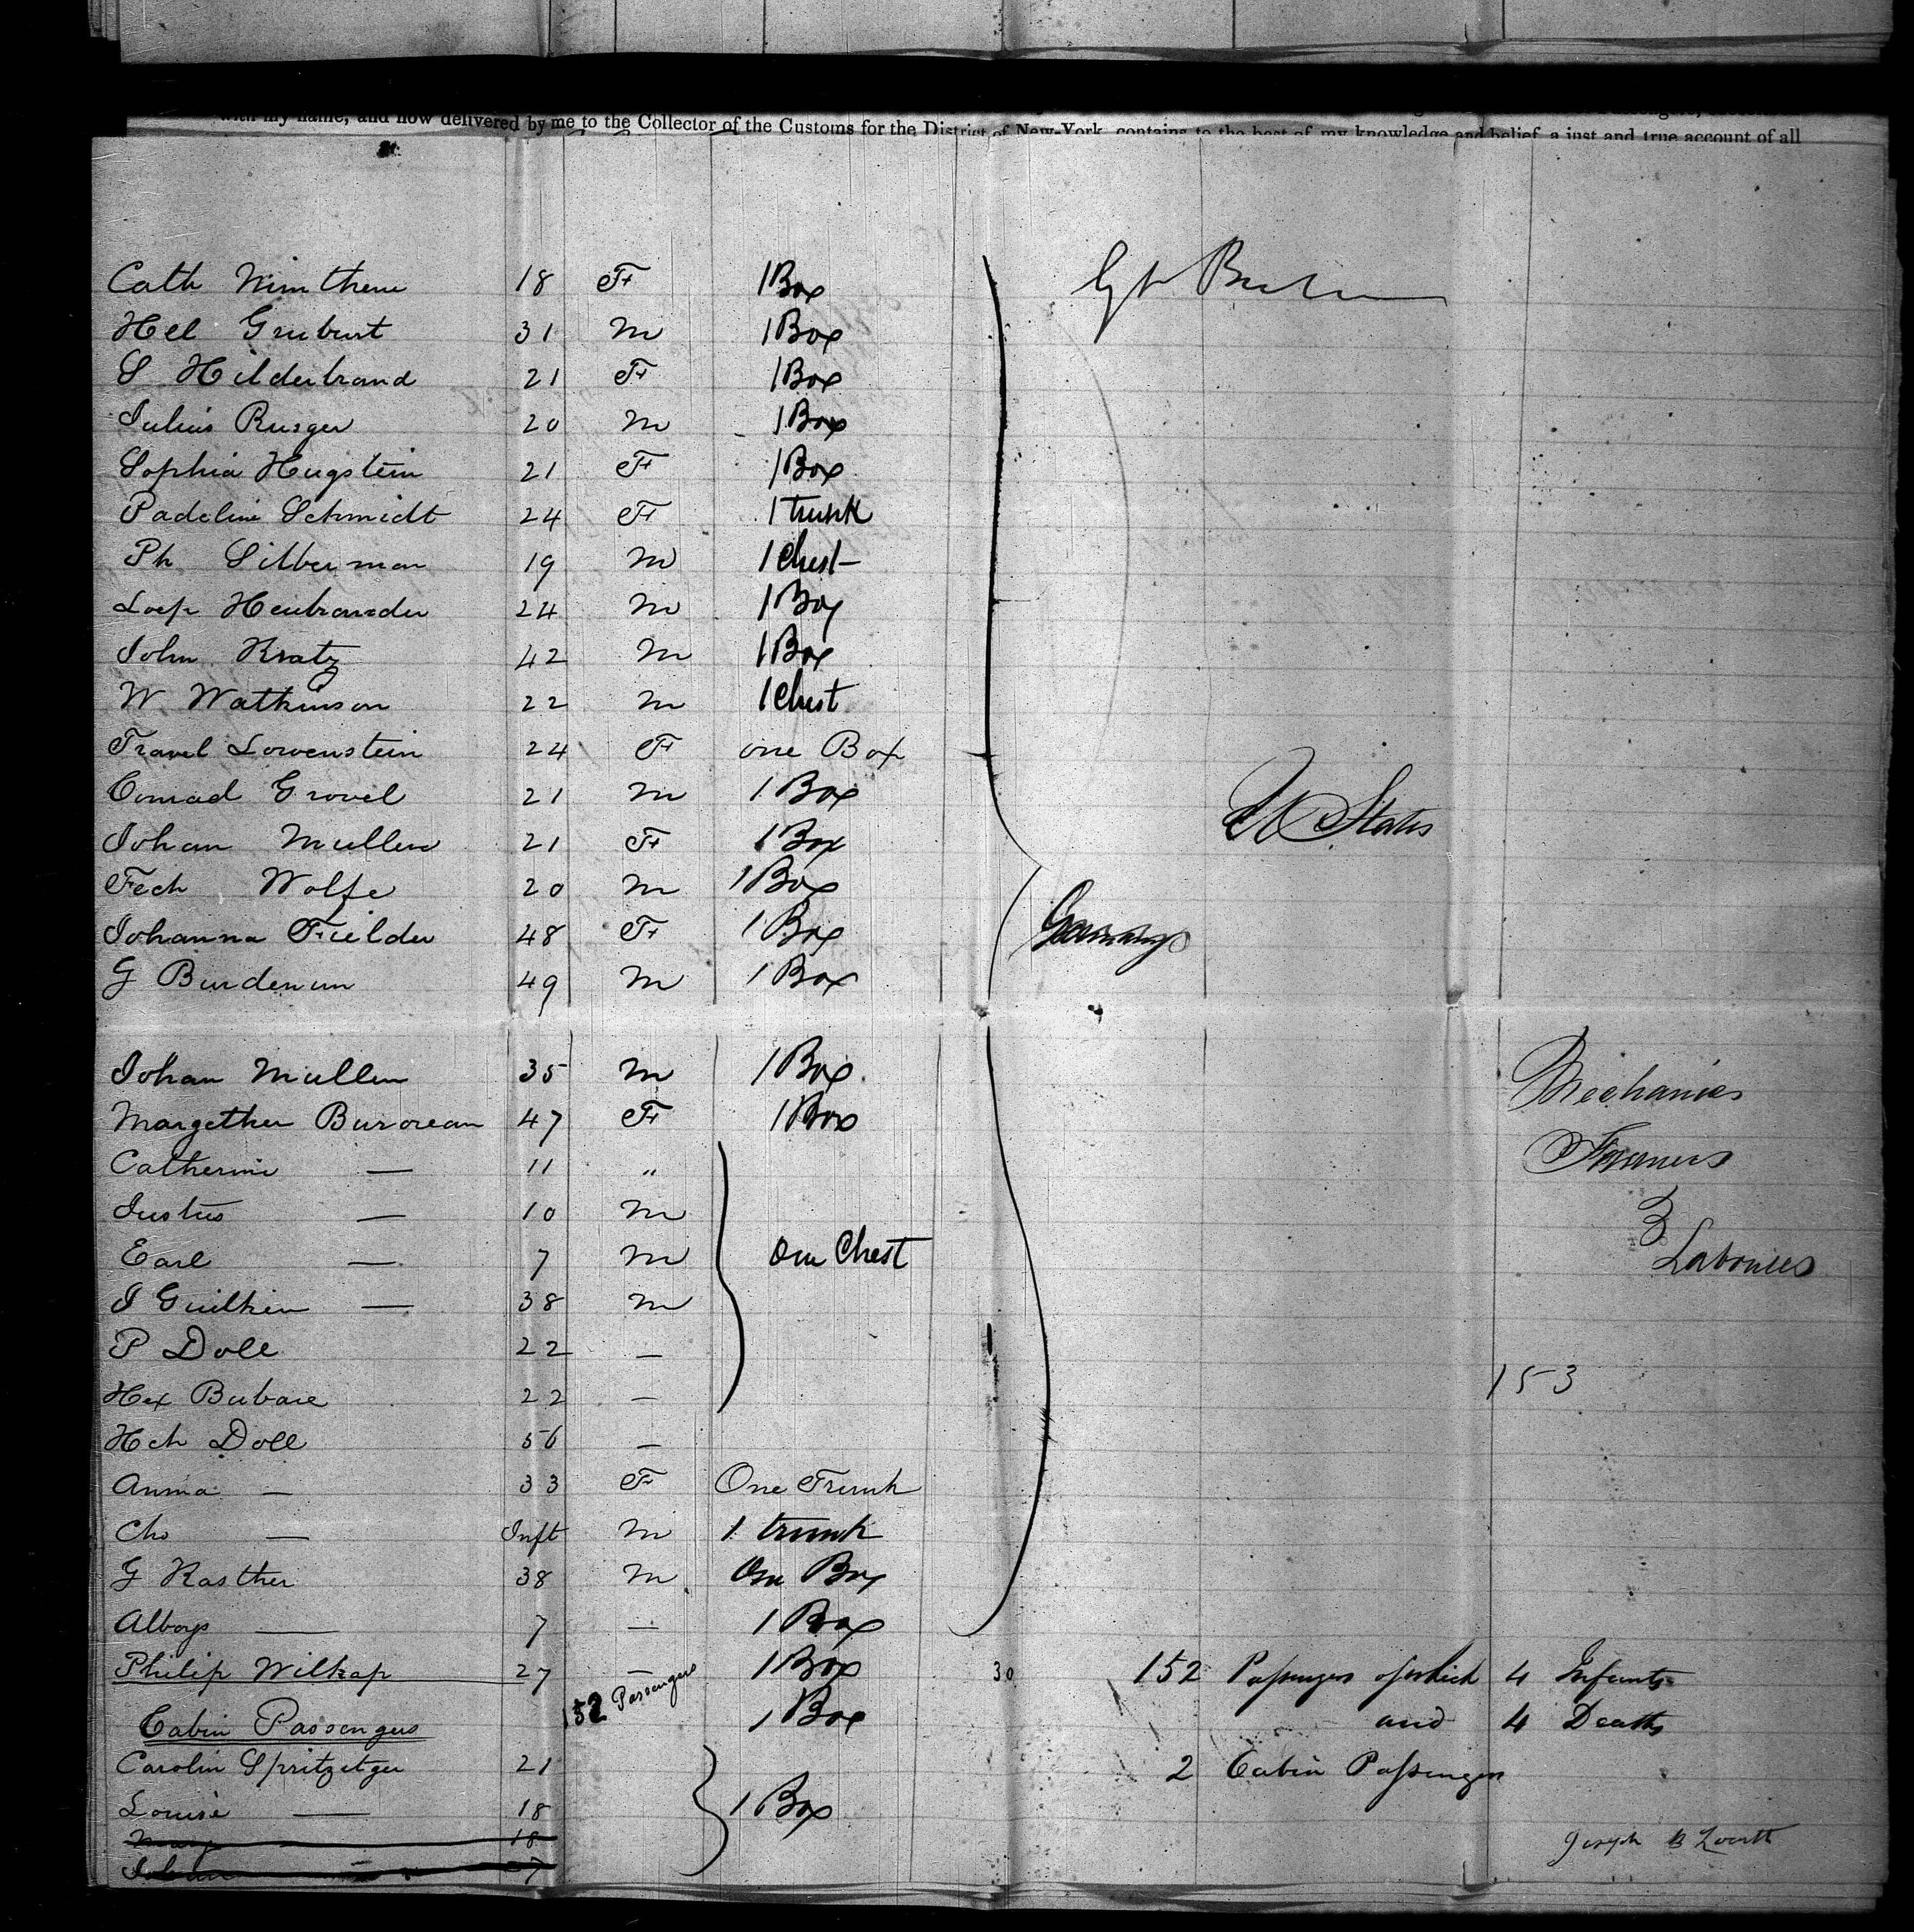 with my name, and now delivered by me to the Collector of the Customs for the District of New-York, contains to the best of my knowledge and belief, a just and true account of all
Cath 18 F 1 Box
Hel Grubust 31 m 1 Box
S Hilderbrand 21 F 1 Box
Julius Rusger 20 m 1 Box
Sophia Hugstein 21 F 1 Box
Padeline Schmidt 24 F 1 trunk
Ph Silberman 19 m 1 Chest
24 m 1 Box
John Kratz 42 m 1 Box
W Watkinson 22 m 1 Chest
Travel Lowenstein 24 F one Box
Conrad Grovel 21 m 1 Box
U States
Johan Mullen 21 F 1 Box
Fech Wolfe 20 m 1 Box
Johanna Fielder 48 F 1 Box
Germany
G 49 m 1 Box
Johan Mullen 35 m 1 Box
Mechanics
Margether 47 F 1 Box
Farmers
Catherine — 11 "
Justus — 10 m
&
Earl — 7 m One Chest
Laborers
J Guilkin — 38 m
P Doll 22 —
153
Hex Bubare 22 —
Hch Doll 56 —
Anma — 33 F One Trunk
Cho — Inft m 1 trunk
G Kasther 38 m One Box
Alboys — 7 — 1 Box
Philip Wilkap 27 — 1 Box 30 152 Passengers of which 4 Infants
152 Passengers
Cabin Passengers 1 Box and 4 Deaths
Carolin Spritzetger 21 2 Cabin Passengers
Louise — 18 1 Box
Mary — 18
Joseph B
Johan — 7